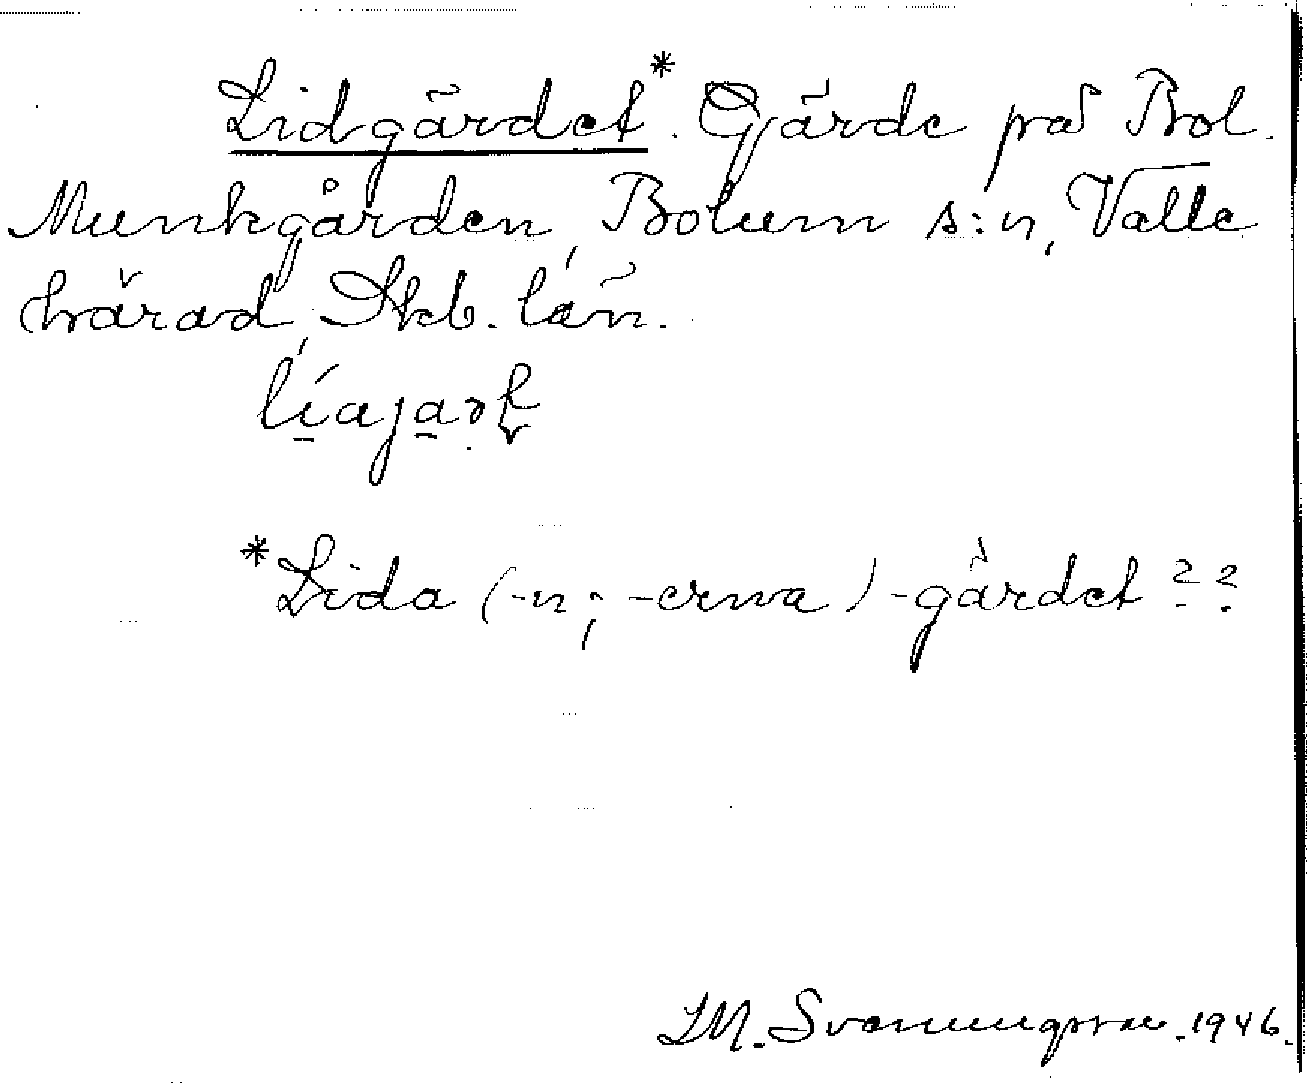 Lidgärdet*. Gjärde på Bol.
Munkgården, Bolum s:n, Valle
härad, Skb. län.
*Lida (-n; -erna) -gärdet??
I.M. Svenungsson. 1946.